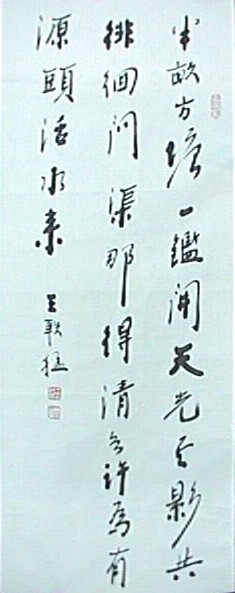 半畝方塘一鑑開天光雲影共
徘徊問渠那得清如許為有
源頭活水来
王耿猛